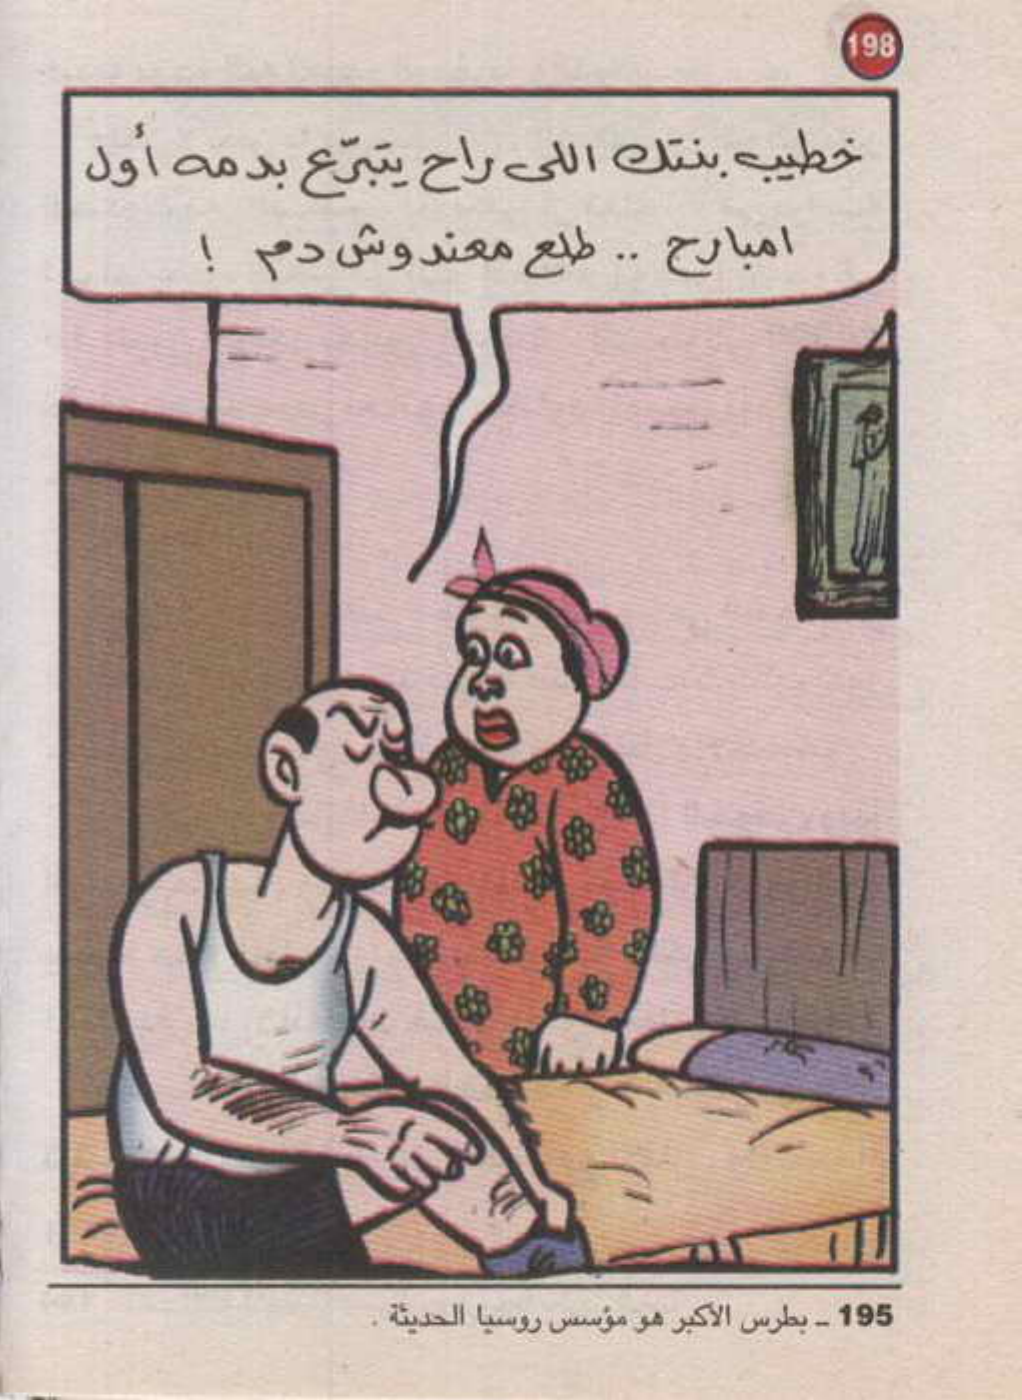 198
خطيب بنتك اللى راح يتبرّع بدمه أول
امبارح .. طلع معندوش دم !
195 ــ بطرس الأكبر هو مؤسس روسيا الحديثة .